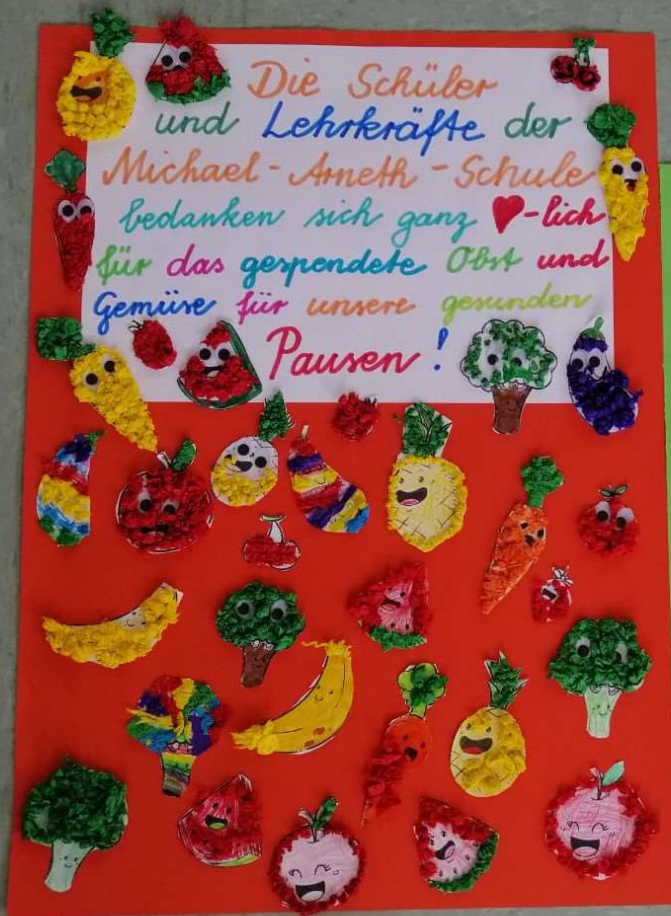 Die Schüler
und Lehrkräfte der
Michael-Arneth-Schule
bedanken sich ganz ♥-lich
für das gespendete Obst und
Gemüse für unsere gesunden
Pausen!